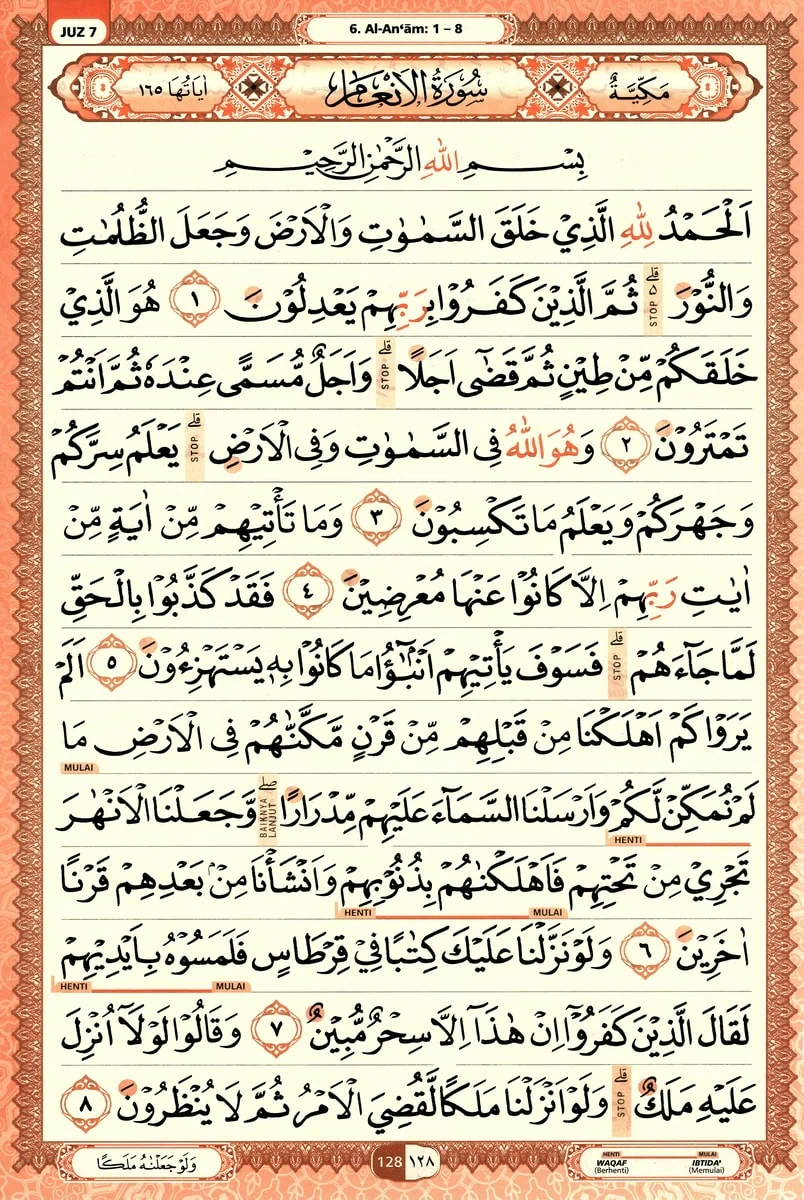 JUZ 7
6. Al-An‘ām: 1 – 8
مَكِّيَّةٌ سُوْرَةُ الْاَنْعَامِ اٰيَاتُهَا ١٦٥
بِسْمِ اللّٰهِ الرَّحْمٰنِ الرَّحِيْمِ
اَلْحَمْدُ لِلّٰهِ الَّذِيْ خَلَقَ السَّمٰوٰتِ وَالْاَرْضَ وَجَعَلَ الظُّلُمٰتِ
وَالنُّوْرَ ۗ STOP ثُمَّ الَّذِيْنَ كَفَرُوْا بِرَبِّهِمْ يَعْدِلُوْنَ ١ هُوَ الَّذِيْ
خَلَقَكُمْ مِّنْ طِيْنٍ ثُمَّ قَضٰٓى اَجَلًا ۗ STOP وَاَجَلٌ مُّسَمًّى عِنْدَهٗ ثُمَّ اَنْتُمْ
تَمْتَرُوْنَ ٢ وَهُوَ اللّٰهُ فِى السَّمٰوٰتِ وَفِى الْاَرْضِ ۗ STOP يَعْلَمُ سِرَّكُمْ
وَجَهْرَكُمْ وَيَعْلَمُ مَا تَكْسِبُوْنَ ٣ وَمَا تَأْتِيْهِمْ مِّنْ اٰيَةٍ مِّنْ
اٰيٰتِ رَبِّهِمْ اِلَّا كَانُوْا عَنْهَا مُعْرِضِيْنَ ٤ فَقَدْ كَذَّبُوْا بِالْحَقِّ
لَمَّا جَاۤءَهُمْ ۗ STOP فَسَوْفَ يَأْتِيْهِمْ اَنْۢبٰۤؤُا مَا كَانُوْا بِهٖ يَسْتَهْزِءُوْنَ ٥ اَلَمْ
يَرَوْا كَمْ اَهْلَكْنَا مِنْ قَبْلِهِمْ مِّنْ قَرْنٍ مَّكَّنّٰهُمْ فِى الْاَرْضِ مَا
MULAI
لَمْ نُمَكِّنْ لَّكُمْ وَاَرْسَلْنَا السَّمَاۤءَ عَلَيْهِمْ مِّدْرَارًا ۖ BAIKNYA LANJUT وَّجَعَلْنَا الْاَنْهٰرَ
HENTI
تَجْرِيْ مِنْ تَحْتِهِمْ فَاَهْلَكْنٰهُمْ بِذُنُوْبِهِمْ وَاَنْشَأْنَا مِنْۢ بَعْدِهِمْ قَرْنًا
MULAI HENTI
اٰخَرِيْنَ ٦ وَلَوْ نَزَّلْنَا عَلَيْكَ كِتٰبًا فِيْ قِرْطَاسٍ فَلَمَسُوْهُ بِاَيْدِيْهِمْ
MULAI HENTI
لَقَالَ الَّذِيْنَ كَفَرُوْٓا اِنْ هٰذَآ اِلَّا سِحْرٌ مُّبِيْنٌ ٧ وَقَالُوْا لَوْلَآ اُنْزِلَ
عَلَيْهِ مَلَكٌ ۗ STOP وَلَوْ اَنْزَلْنَا مَلَكًا لَّقُضِيَ الْاَمْرُ ثُمَّ لَا يُنْظَرُوْنَ ٨
وَلَوْ جَعَلْنٰهُ مَلَكًا
128 ١٢٨
HENTI MULAI
WAQAF IBTIDA'
(Berhenti) (Memulai)